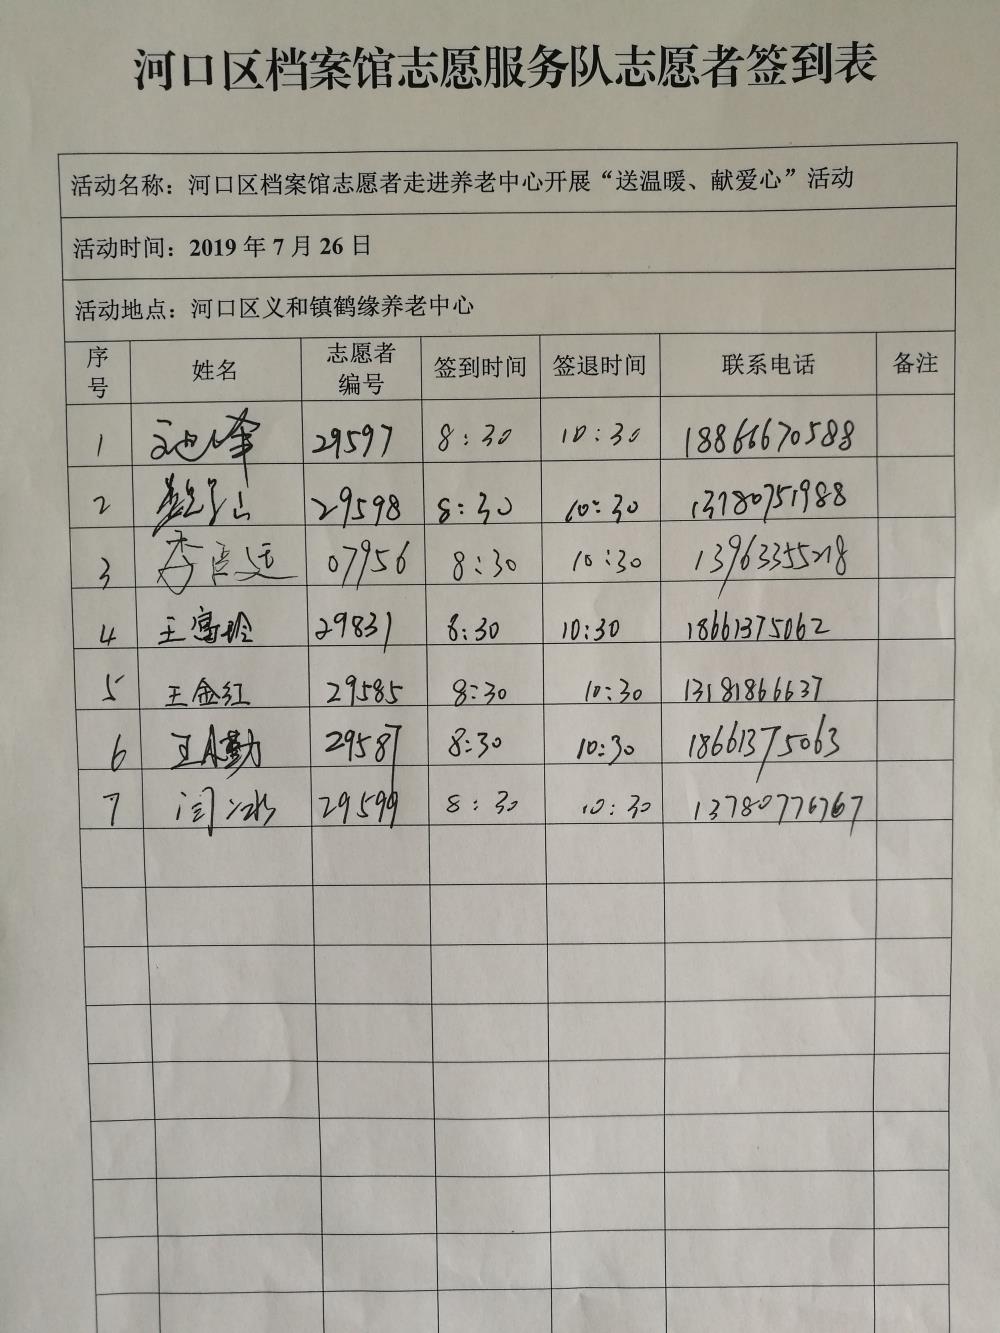 河口区档案馆志愿服务队志愿者签到表
活动名称：河口区档案馆志愿者走进养老中心开展“送温暖、献爱心”活动
活动时间：2019 年 7 月 26 日
活动地点：河口区义和镇鹤缘养老中心
序号 姓名 志愿者编号 签到时间 签退时间 联系电话 备注
1 29597 8:30 10:30 18866670588
2 29598 8:30 10:30 13780751988
3 李 廷 07956 8:30 10:30 13963355218
4 王富玲 29831 8:30 10:30 18661375062
5 王金红 29585 8:30 10:30 13181866637
6 王 勤 29587 8:30 10:30 18661375063
7 闫冰 29599 8:30 10:30 13780776767